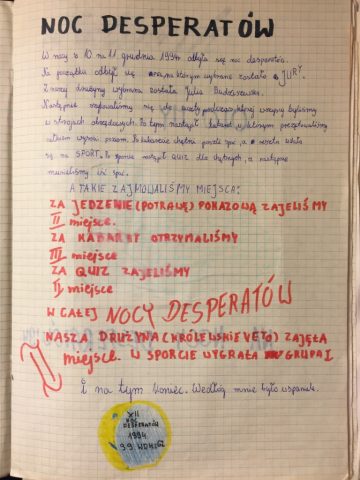 NOC DESPERATÓW
W nocy z 10 na 11 grudnia 1994 odbyła się noc desperatów.
Na początku odbył się na którym wybrane zostało JURY.
Z naszej drużyny wybrana została Julia
Następnie się do podczas której wszyscy byliśmy
w strojach Po tym nastąpił kabaret w którym
Po kabarecie chętni poszli spać, a reszta udała
się na SPORT. Po sporcie nastąpił QUIZ dla chętnych, a następnie
musieliśmy iść spać.
A TAKIE ZAJMOWALIŚMY MIEJSCA:
ZA JEDZENIE (POTRAWĘ) POKAZOWĄ ZAJELIŚMY
II miejsce.
ZA KABARET OTRZYMALIŚMY
III miejsce
ZA QUIZ ZAJELIŚMY
miejsce
W CAŁEJ NOCY DESPERATÓW
NASZA DRUŻYNA (KRÓLEWSNIEVETO) ZAJĘŁA
II miejsce. W SPORCIE WYGRAŁA GRUPA I
I na tym koniec. Według mnie było wspaniale.
XII
NOC
DESPERATÓW
1994